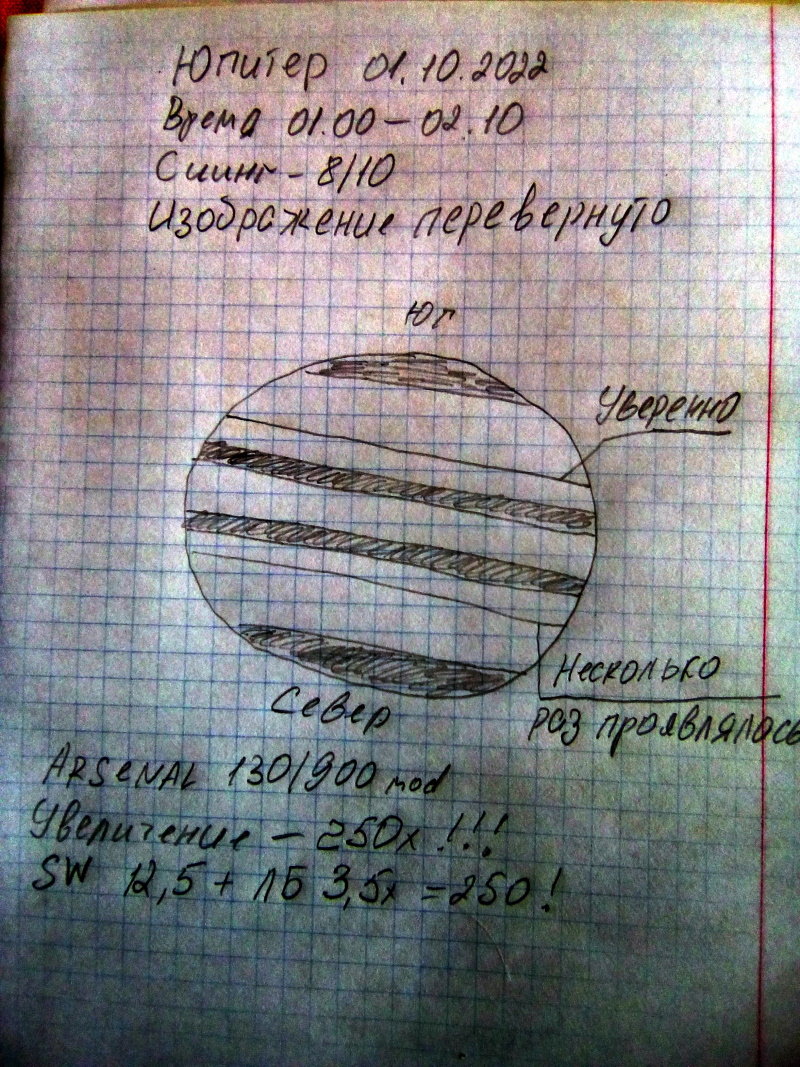 Юпитер 01.10.2022
Время 01.00 – 02.10
Сиинг - 8/10
Изображение перевернуто
Юг
Уверенно
Несколько
раз проявлялось
Север
ARSENAL 130/900 mod
Увеличение – 250х !!!
SW 12,5 + ЛБ 3,5х = 250 !